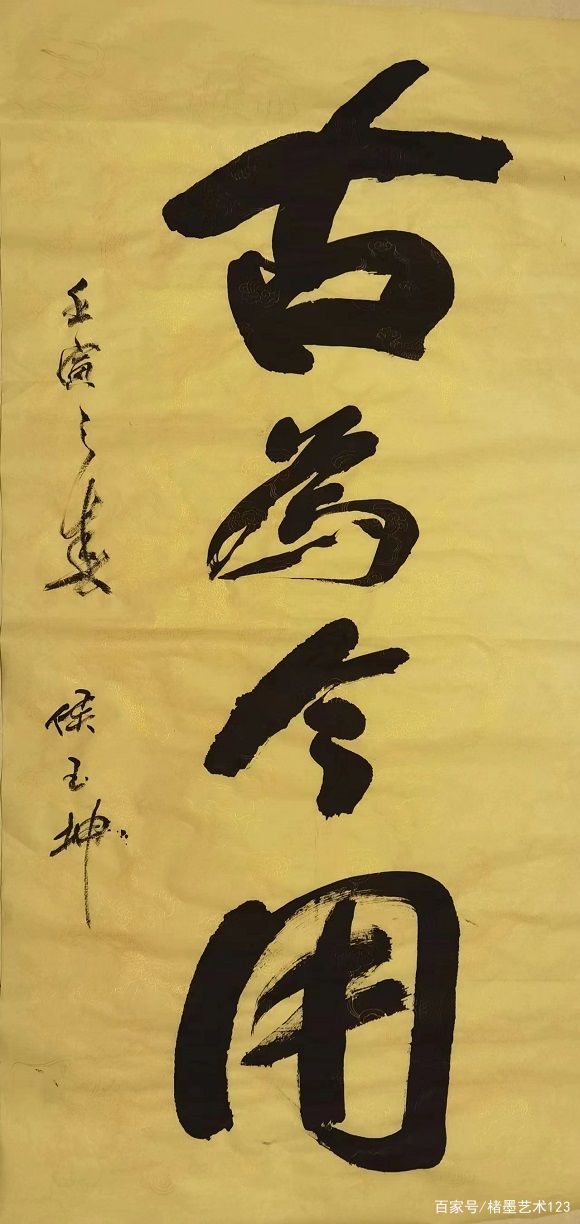 古為今用
壬寅之春 侯玉坤
百家号/楮墨艺术123